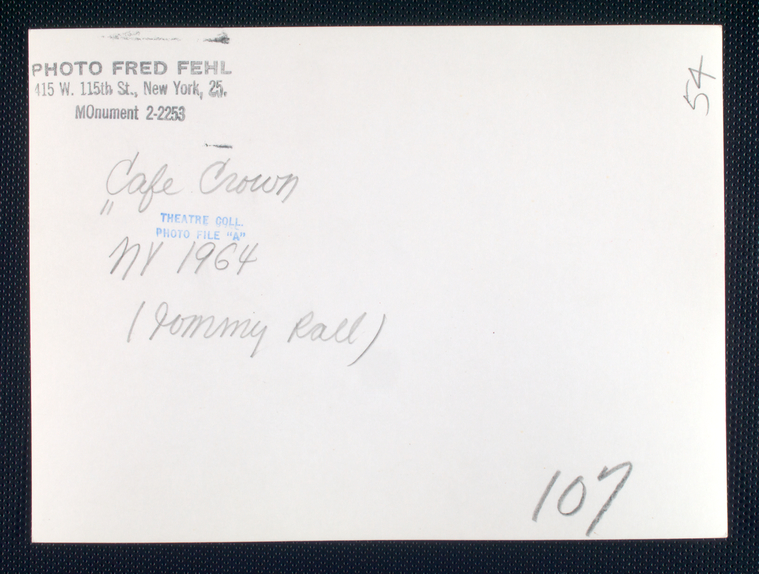 PHOTO FRED FEHL
415 W. 115th St., New York, 25.
MOnument 2-2253
54
Cafe Crown
THEATRE COLL.
PHOTO FILE "A"
NY 1964
(Tommy Rall)
107